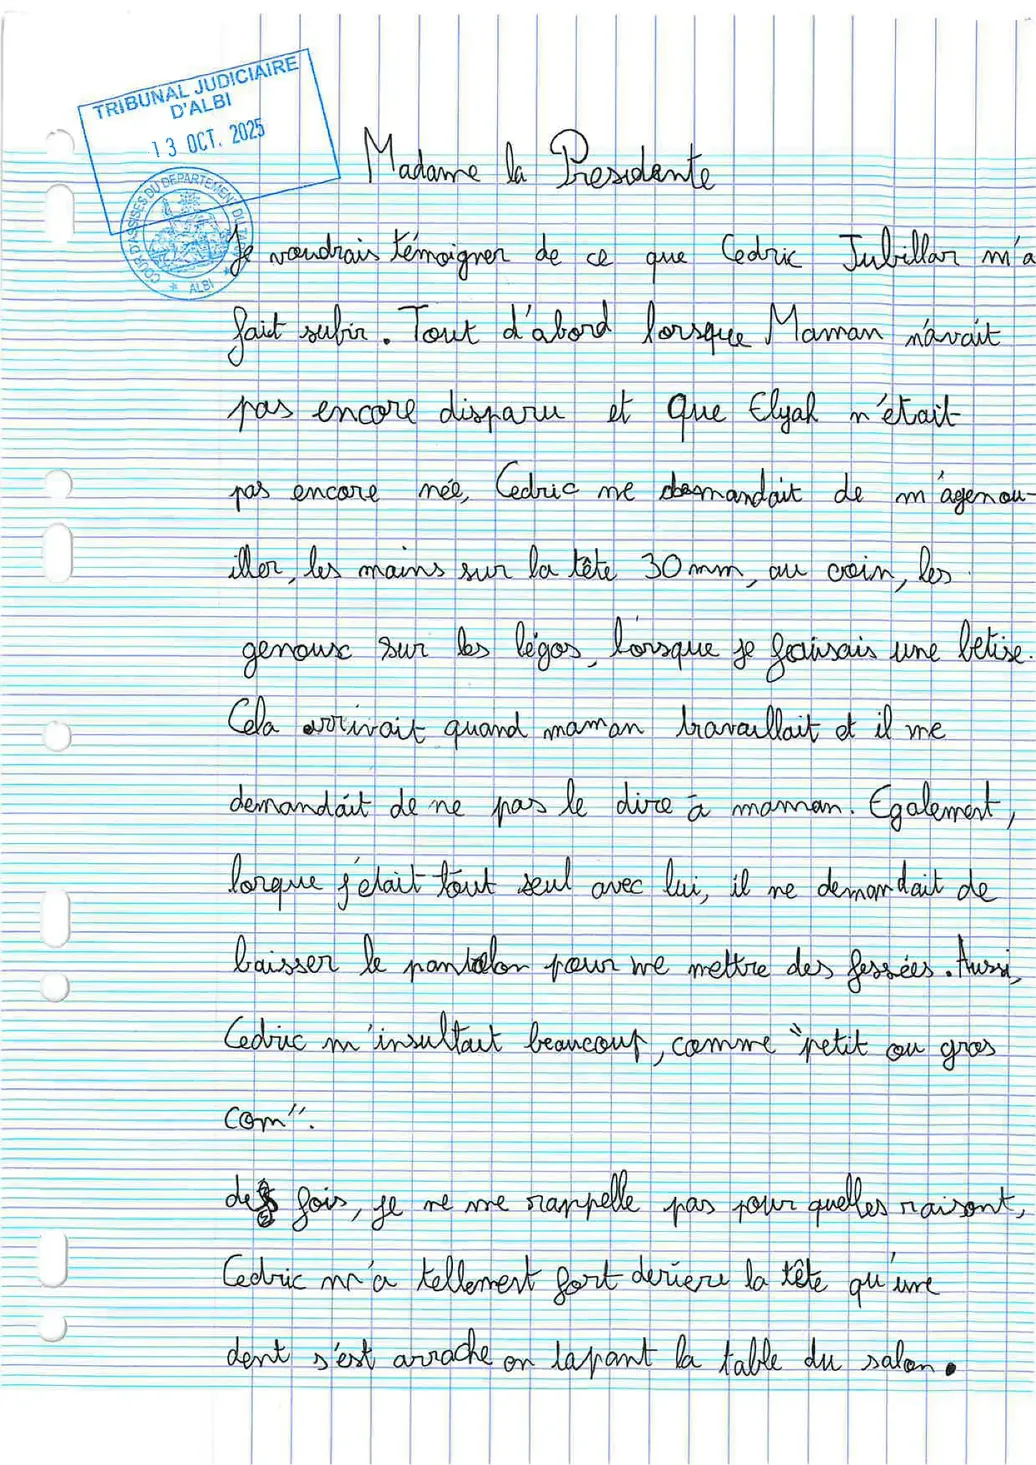 TRIBUNAL JUDICIAIRE
D'ALBI
13 OCT. 2025
COUR D'ASSISES DU DEPARTEMENT DU TARN
* ALBI *
Madame la Presidente
Je voudrais témoigner de ce que Cedric Jubillar m'a
fait subir. Tout d'abord lorsque Maman n'avait
pas encore disparu et que Elyah n'était
pas encore née, Cedric me demandait de m'agenou-
iller, les mains sur la tête 30 mm, au coin, les
genoux sur les légos, lorsque je faisais une betise.
Cela arrivait quand maman travaillait et il me
demandait de ne pas le dire à maman. Egalement,
lorque j'était tout seul avec lui, il me demandait de
baisser le pantalon pour me mettre des fessées. Aussi,
Cedric m'insultait beaucoup, comme "petit ou gros
com".
des fois, je ne me rappelle pas pour quelles raisont,
Cedric m'a tellement fort deriere la tête qu'une
dent s'est arraché en tapant la table du salon.